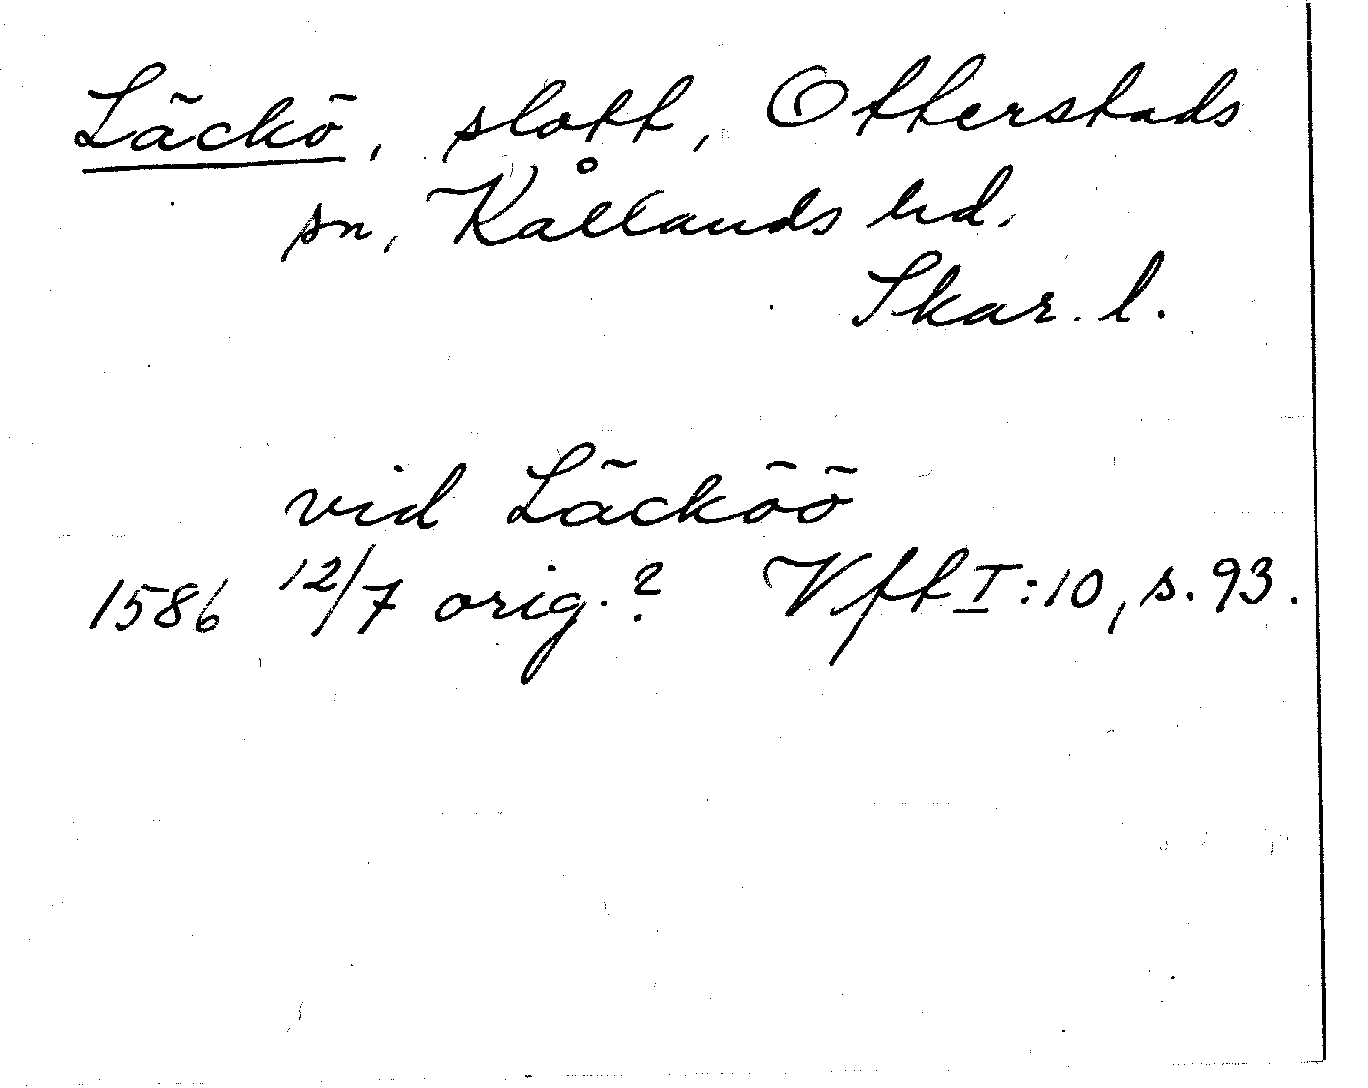 Läckö, slott, Otterstads
sn, Kållands hd.
Skar. l.
vid Läcköö
1586 12/7 orig.? Vfft I:10, s. 93.